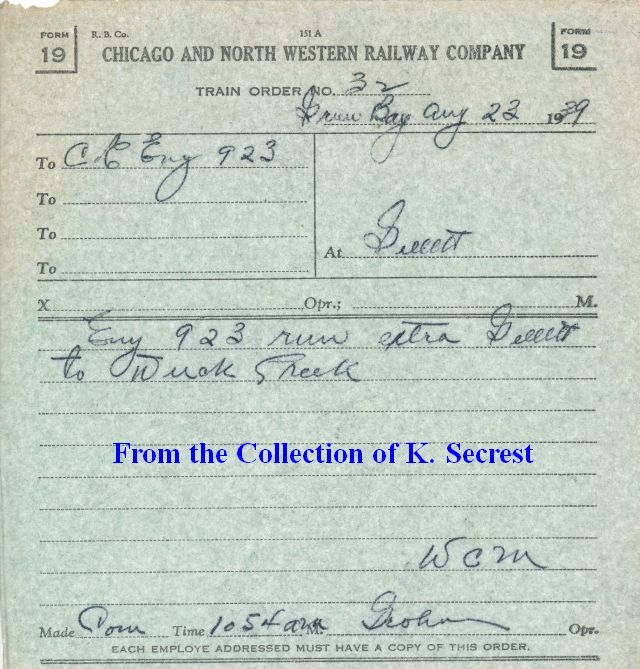 FORM 19 R. B. Co. 151 A FORM 19
CHICAGO AND NORTH WESTERN RAILWAY COMPANY
TRAIN ORDER NO. 32
Green Bay Aug 23 1939
To C&E Eng 923
To
To
To
At Gillett
X Opr.; M.
Eng 923 run extra Gillett
to Duck Creek
From the Collection of K. Secrest
WCM
Made Com Time 1054 am M. Opr.
EACH EMPLOYE ADDRESSED MUST HAVE A COPY OF THIS ORDER.